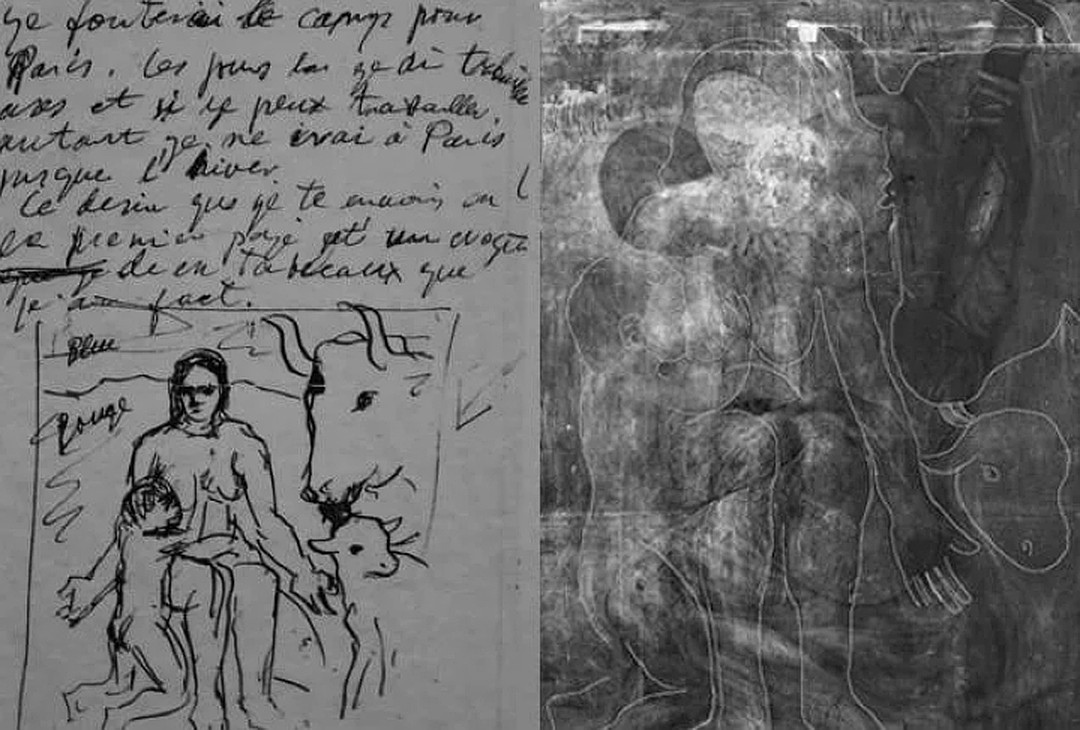 ge fouterai le camps pour
Paris. Les jours los ge di trabaille
ases et si ge peux trabailler
autant ge ne irai à Paris
jusque l'hiver
Ce desin que ge te envois en
la premier page et un croquis
de en tableaux que
j'ai fact.
Bleu
Rouge